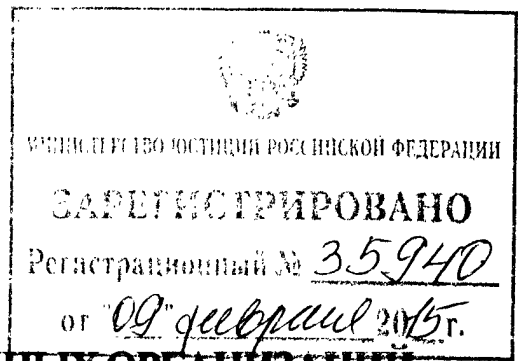 МИНИСТЕРСТВО ЮСТИЦИИ РОССИЙСКОЙ ФЕДЕРАЦИИ
ЗАРЕГИСТРИРОВАНО
Регистрационный № 35940
от "09" февраля 2015г.
НЫХ ОРГАНИЗАЦИЙ